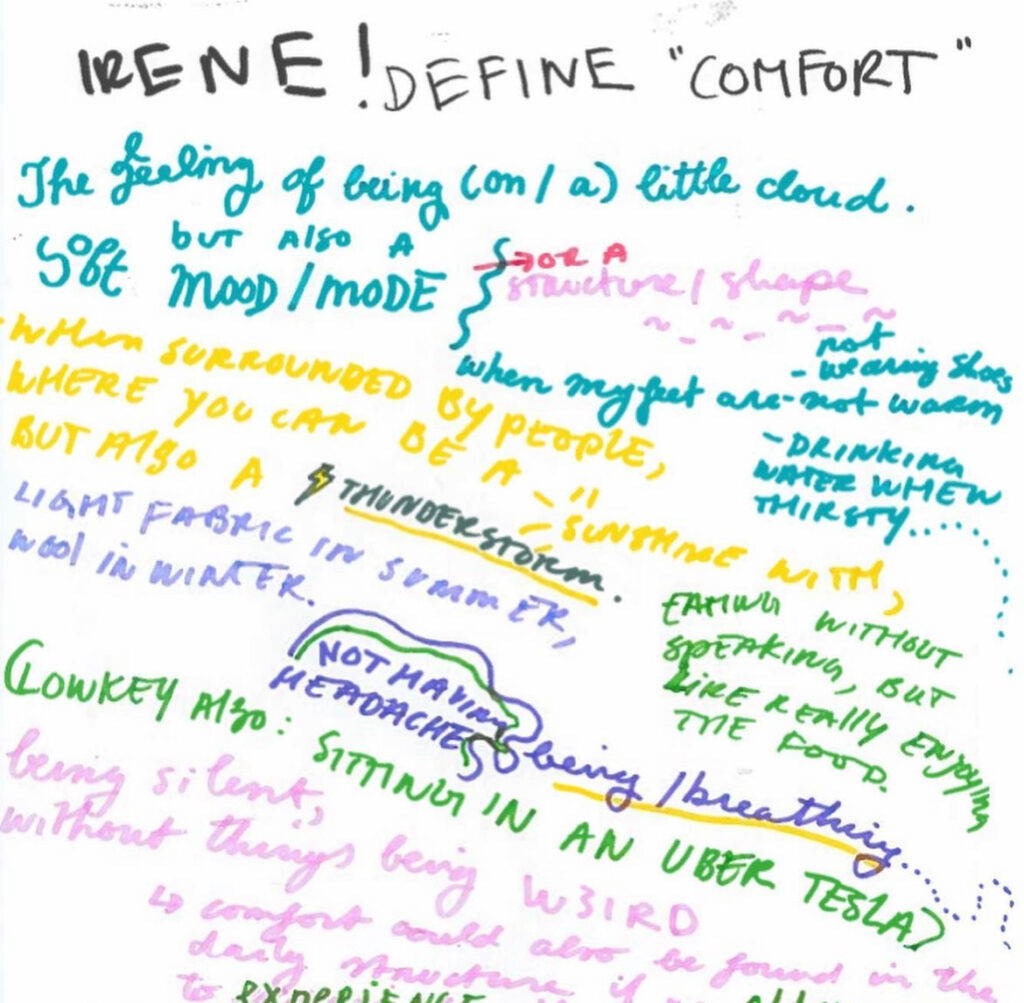 IRENE! DEFINE "COMFORT"
The feeling of being (on/a) little cloud.
Soft but also a MOOD/MODE
→ OR A
structure/shape
when my feet are not warm
- not wearing shoes
- DRINKING
WATER WHEN
THIRSTY.....
WHEN SURROUNDED BY PEOPLE,
WHERE YOU CAN BE A SUNSHINE WITH,
BUT Also A THUNDERSTORM.
LIGHT FABRIC IN SUMMER,
Wool IN WINTER.
EATING WITHOUT
SPEAKING, BUT
LIKE REALLY ENJOYING
THE FOOD.
NOT HAVING
HEADACHES
being/breathing.....
(LOWKEY Also: SITTING IN AN UBER TESLA)
being silent,
without things being W3IRD
↳ comfort could also be found in the
daily structure if
to EXPERIENCE